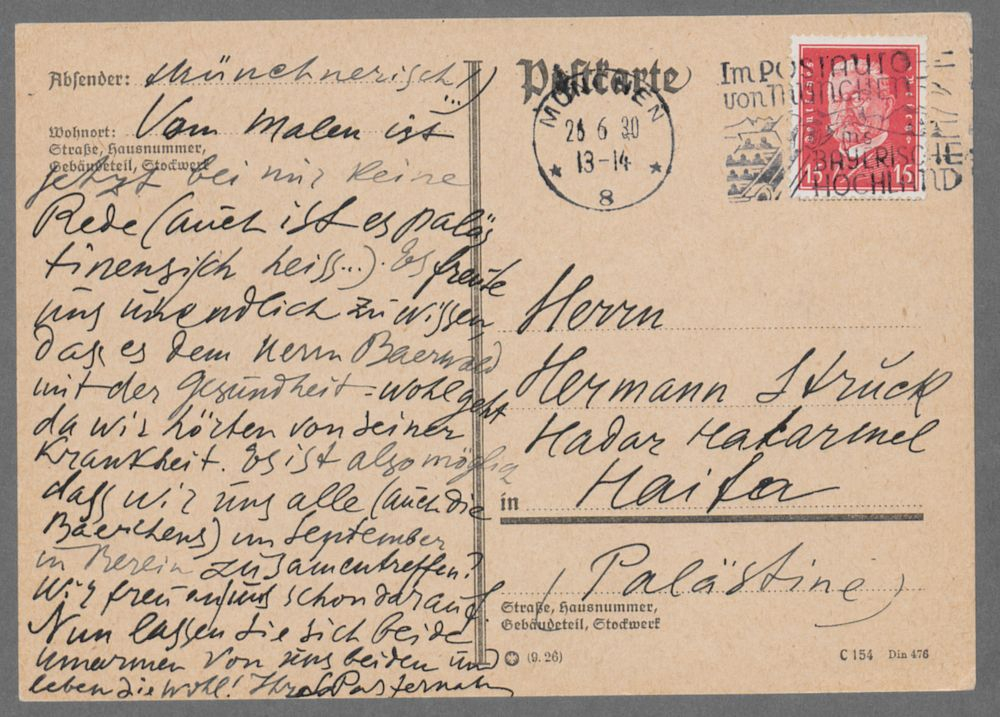 Absender: Münchnerisch)
Wohnort: Vom malen ist
Straße, Hausnummer,
Gebäudeteil, Stockwerk
jetzt bei mir keine
Rede (auch ist es paläs
tinensisch heiss...). Es freute
uns unendlich zu wissen,
dass es dem Herrn Baerwald
mit der Gesundheit - wohlgeht
da wir hörten von seiner
Krankheit. Es ist also möglich
dass wir uns alle (auch die
Baerchens) im September
in Berlin zusamentreffen?
Wir freuen uns schon darauf.
Nun lassen Sie sich beide
umarmen von uns beiden und
leben Sie wohl! Ihr LPasternak
Postkarte
MÜNCHEN
26 6 30
13-14
8
Im POSTAUTO
von MÜNCHEN
ins
BAYERISCHE
HOCHLAND
15 15
Herrn
Hermann Struck
Hadar Hakarmel
in Haifa
(Palästina)
Straße, Hausnummer,
Gebäudeteil, Stockwerk
(9. 26)
C 154 Din 476